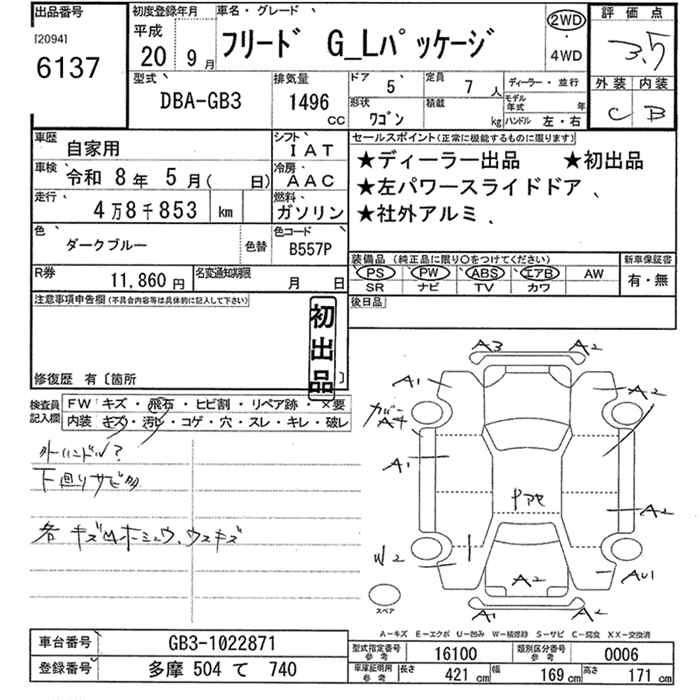 出品番号
[2094]
6137
初度登録年月
平成
20 9月
車名・グレード
フリード G_Lパッケージ
2WD
・
4WD
評価点
3.5
外装 内装
C B
型式
DBA-GB3
排気量
1496
CC
ドア
5
定員
7人
形状
ワゴン
積載
kg
ディーラー・並行
モデル年式 年
ハンドル 左・右
車歴
自家用
シフト
IAT
車検
令和 8年 5月( 日)
冷房
AAC
走行
4万8千853 km
燃料
ガソリン
色
ダークブルー
色替
色コード
B557P
R券
11,860円
名変通知期限
月 日
セールスポイント(正常に機能するものに限ります)
★ディーラー出品 ★初出品
★左パワースライドドア
★社外アルミ
装備品(純正品に限り○をつけてください)
PS PW ABS エアB AW
SR ナビ TV カワ
新車保証書
有・無
後日品
注意事項申告欄(不具合内容等は具体的に記入して下さい)
初出品
修復歴 有〔箇所 〕
検査員記入欄
FW キズ・飛石・ヒビ割・リペア跡・×要
内装 キズ・汚レ・コゲ・穴・スレ・キレ・破レ
下廻りサビ
A3 A2
A1 A2
カバー
A1
A2
W2
A2
AU1
A1 A2
スペア
A-キズ E-エクボ U-凹み W-補修跡 S-サビ C-腐食 XX-交換済
車台番号
GB3-1022871
登録番号
多摩 504 て 740
型式指定番号
参考
16100
類別区分番号
参考
0006
車庫証明用
参考
長さ 421 cm 幅 169 cm 高さ 171 cm